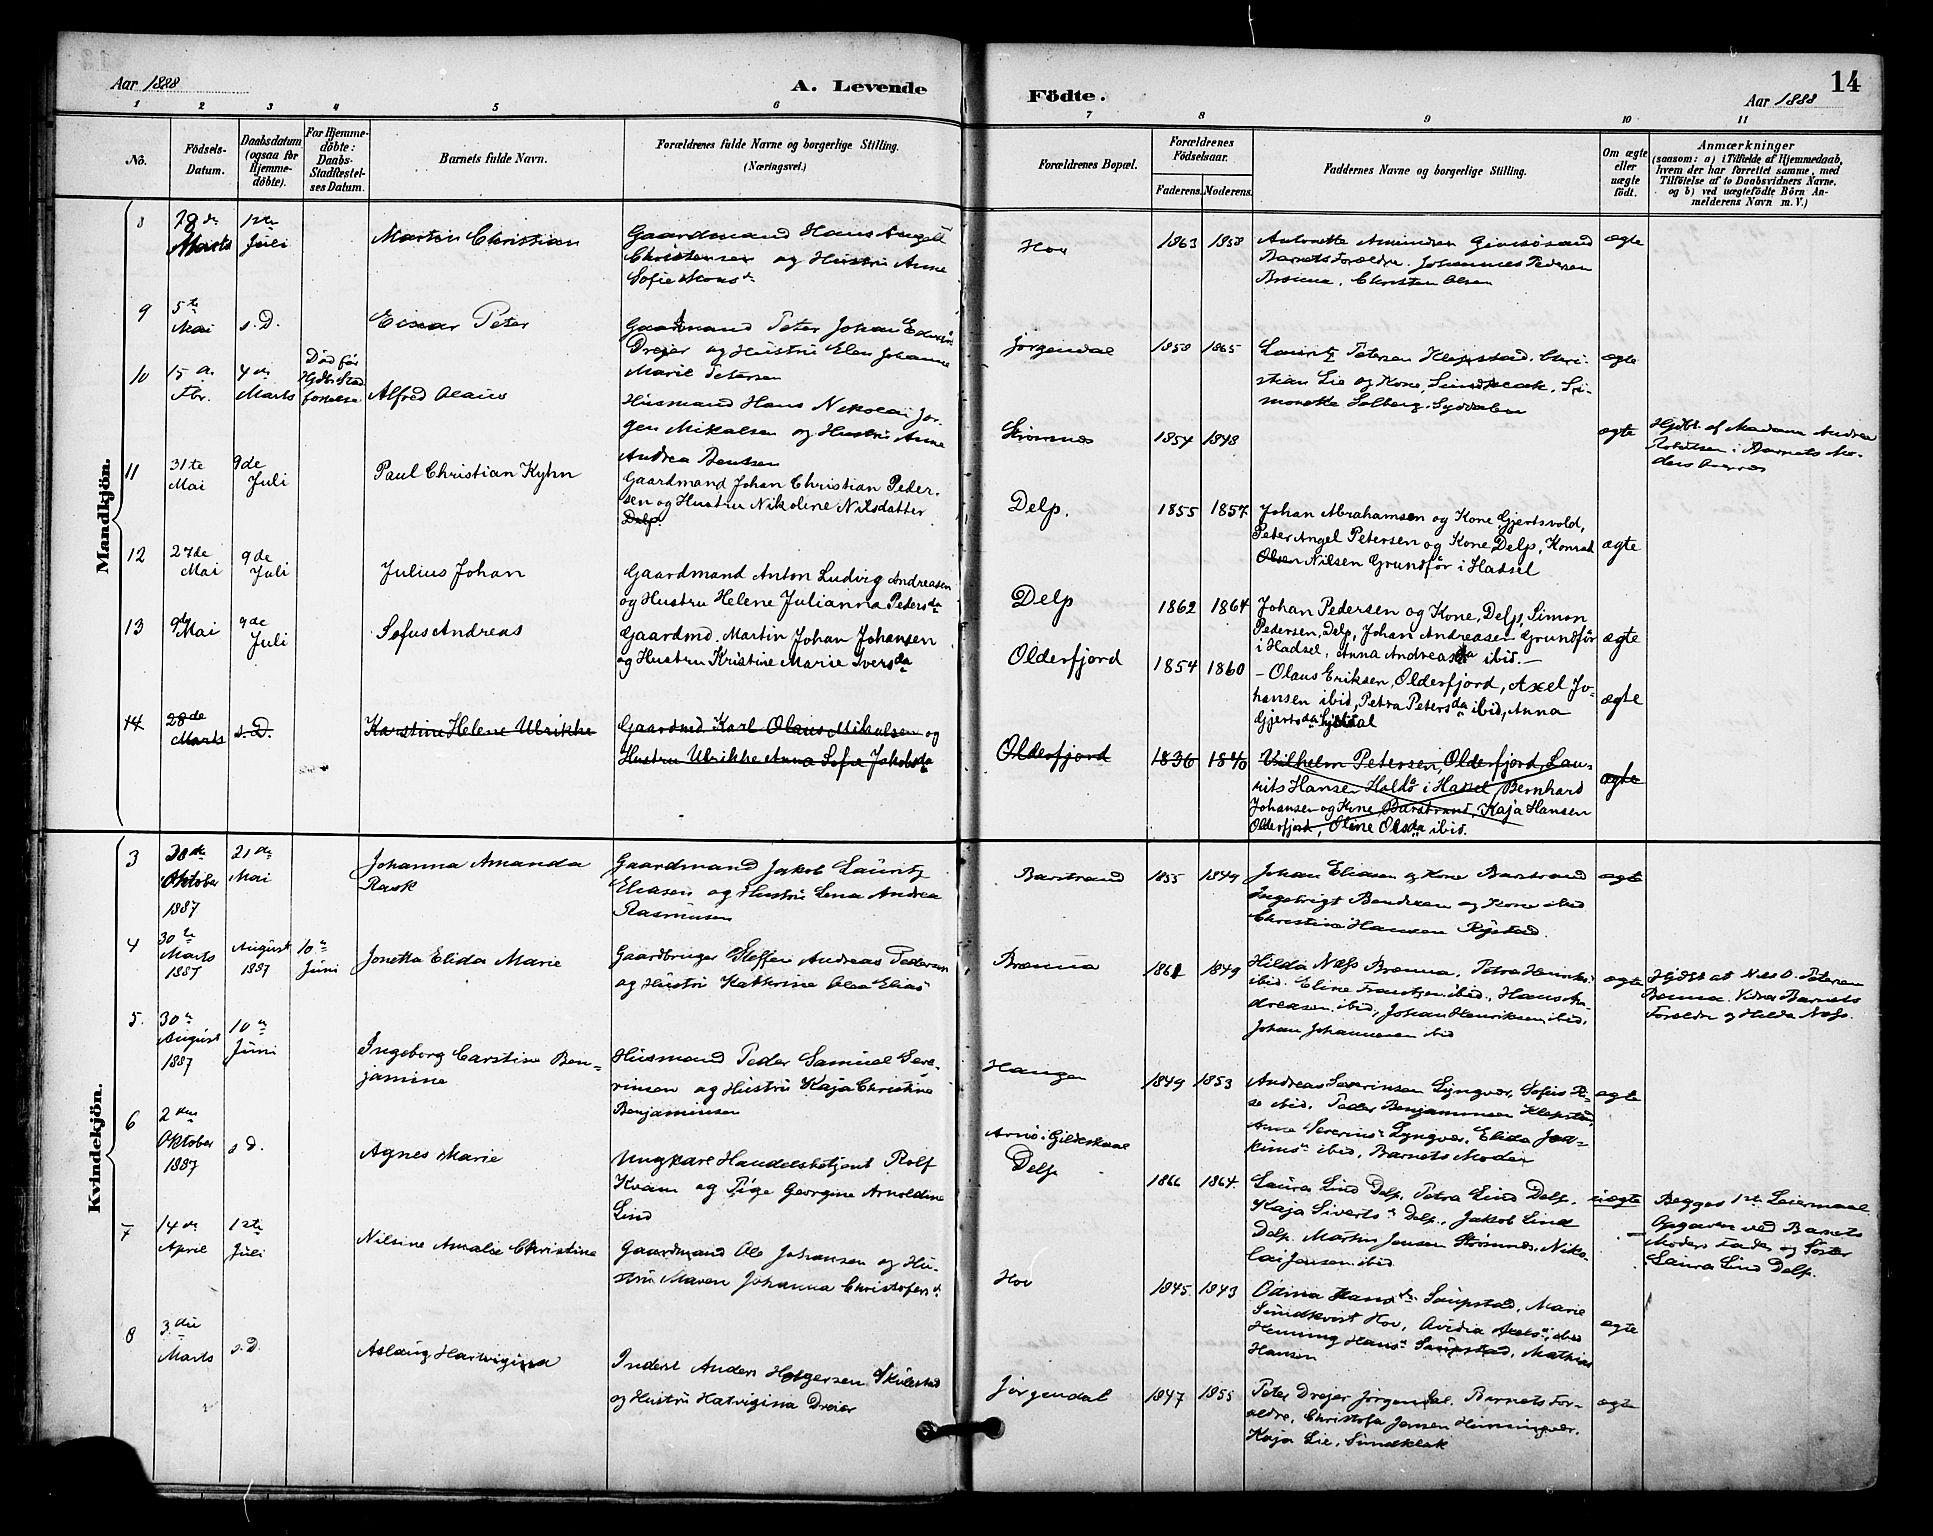 Aar 1888
A. Levende
1 2 3 4 5 6
No.
Födsels-
Datum.
Daabsdatum
(ogsaa for
Hjemme-
döbte).
For Hjemme-
döbte:
Daabs-
Stadfæstel-
ses Datum.
Barnets fulde Navn.
Forældrenes fulde Navne og borgerlige Stilling.
(Næringsvei.)
Mandkjön.
8
18de
Marts
1ste
Juli
Martin Christian
Gaardmand Hans Angell
Christensen og Hustru Anne
Sofie Monsd.
9
5te
Mai
s.D.
Einar Peter
Gaardmand Peter Johan Edvard
Drejer og Hustru Elen Johanne
Marie Petersen
10
15de
Fbr.
4de
Marts
Død før
Alfred Olaus
Husmand Hans Nikolai Jør-
gen Mikalsen og Hustru Anne
Andrea Bentsen
11
31te
Mai
9de
Juli
Paul Christian Kyhn
Gaardmand Johan Christian Peder-
sen og Hustru Nikoline Nilsdatter
Delp.
12
27de
Mai
9de
Juli
Julius Johan
Gaardmand Anton Ludvig Andreasen
og Hustru Helene Julianna Pedersda
13
9de
Mai
9de
Juli
Sofus Andreas
Gaardmd. Martin Johan Johansen
og Hustru Kristine Marie Iversda
14
28de
Marts
s.D.
Karstine Helene Ulrikke
Gaardmd. Karl Olaus Mikalsen og
Hustru Ulrikke Anna Sofie Jakobsda
Kvindekjön.
3
28de
Oktober
1887
21de
Mai
Johanna Amanda
Rask
Gaardmand Jakob Lauritz
Eliasen og Hustru Lena Andrea
Rasmussen
4
30te
Marts
1887
August
1887
10de
Juni
Jonetta Elida Marie
Gaardbruger Steffen Andreas Pedersen
og Hustru Kathrine Olea Elias
5.
30te
August
1887
10de
Juni
Ingeborg Carstine Ben-
jamine
Husmand Peder Samuel Seve-
rinsen og Hustru Kaja Christine
Benjaminsen
6
2den
Oktober
1887
s D.
Agnes Marie
Ungkarl Handelsbetjent Rolf
Kvam og Pige Georgine Arnoldine
Lind
7
14de
April
1ste
Juli
Nilsine Amalie Christine
Gaardmand Ole Johansen og Hu-
stru Maren Johanna Christofersd
8
3die
Marts
s.D.
Aslaug Hartvigina
Inderst Anders Holgersen Skulestad
og Hustru Hatvigina Dreier
Födte.
14
Aar 1888
7 8 9 10 11
Forældrenes Bopæl.
Forældrenes
Födselsaar.
Faderens. Moderens.
Faddernes Navne og borgerlige Stilling.
Om ægte
eller
uægte
födt.
Anmærkninger
(saasom: a) i Tilfælde af Hjemmedaab,
hvem der har forrettet samme, med
Tilföielse af to Daabsvidners Navne,
og b) ved uægtefödte Börn An-
melderens Navn m. V.)
Hov
1863 1858
Antonette Amundsen Gimsøsand
Barnets Forældre. Johannes Pedersen
Brenna, Christen Olsen
ægte
Jørgendal
1858 1865
Lauritz Petersen Klepstad, Chri-
stian Lie og Kone, Sundklak, Si-
monette Solberg, Syddalen
ægte
Strømnes
1854 1848
ægte
Hjdbt. af Madam Andrea
i Barnets Mo-
ders
Delp.
1855 1857
Johan Abrahamsen og Kone Gjertsvold,
Peter Angel Petersen og Kone Delp, Konrad
Olsen Nilsen Grundfør i Hadsel
ægte
Delp
1862 1864
Johan Pedersen og Kone, Delp, Simon
Pedersen, Delp, Johan Andreasen Grundfør
i Hadsel, Anna Andreasda ibid.—
ægte
Olderfjord
1854 1860
– Olaus Eriksen, Olderfjord, Axel Jo-
hansen ibid, Petra Petersda ibid, Anna
Gjertsda
ægte
Olderfjord
1836 1840
Vilhelm Petersen, Olderfjord, Lau-
rits Hansen Holdø i Hassel, Bernhard
Johansen og Kone, Barstrand, Kaja Hansen
Olderfjord, Oline Olsda ibid.
ægte
Barstrand
1855 1849
Johan Eliasen og Kone Barstrand
Ingebrigt Bendixen og Kone ibid
Christina Hansen
ægte
Brenna
1861 1849
Hilda Næss Brenna, Petra Henriks
ibid. Eline Frantzen ibid, Hans An-
dreasen ibid, Johan Henriksen ibid,
Johan Johannesen ibid
ægte
Hjdbt af Nils O. Petersen
Brenna. Vidner Barnets
Forældre og Hilda Næss.
Haugen
1849 1853
Andreas Severinsen Lyngvær, Sofie
ibid, Peder Benjaminsen Klepstad,
Anne Severins Lyngvær, Elida Joa-
kims ibid, Barnets Moder
ægte
Arnø i Gildeskaal
Delp
1866 1864.
Laura Lind Delp, Petra Lind Delp,
Kaja Siverts Delp, Jakob Lind
Delp, Martin Jensen Strømnes, Niko-
lai Jensen ibid.
uægte
Begges 1ste Leiermaal.
Opgaven ved Barnets
Moders Fader og Søster
Laura Lind Delp.
Hov
1845 1843
Odina Hansda Saupstad, Marie
Sundkvist Hov, ibid
Henning Hans Saupstad, Mathias
Hansen
ægte
Jørgendal
1847 1855
Peter Drejer Jørgendal, Barnets For-
ældre, Christofa Jensen Henningvær,
Kaja Lie, Sundklak
ægte